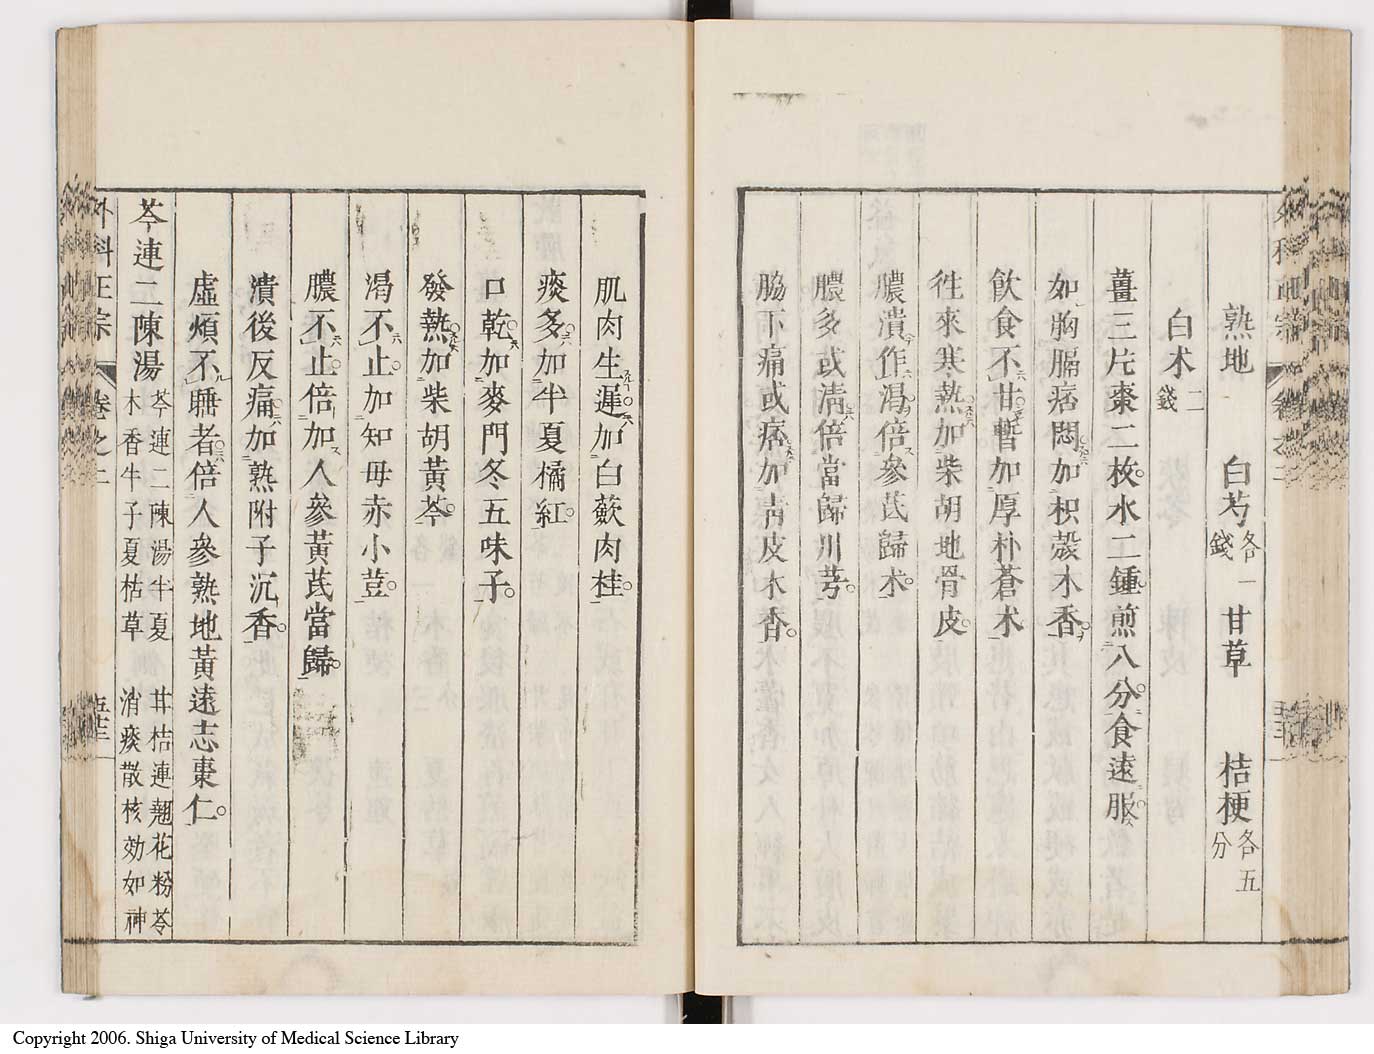 熟地 白芍各一錢 甘草 桔梗各五分
白朮二錢
薑三片棗二枚水二鍾煎八分食遠服
如胸膈痞悶加枳殼木香
飲食不甘暫加厚朴蒼朮
徃來寒熱加柴胡地骨皮
膿潰作渴倍參芪歸朮
膿多或清倍當歸川芎
脇下痛或痞加青皮木香
肌肉生遲加白蘞肉桂
痰多加半夏橘紅
口乾加麥門冬五味子
發熱加柴胡黃芩
渴不止加知母赤小荳
膿不止倍加人參黃芪當歸
潰後反痛加熟附子沉香
虛煩不睡者倍人參熟地黃遠志棗仁
芩連二陳湯 芩連二陳湯半夏 甘桔連翹花粉芩
木香牛子夏枯草 消痰散核効如神
外科正宗 卷之二
Copyright 2006. Shiga University of Medical Science Library